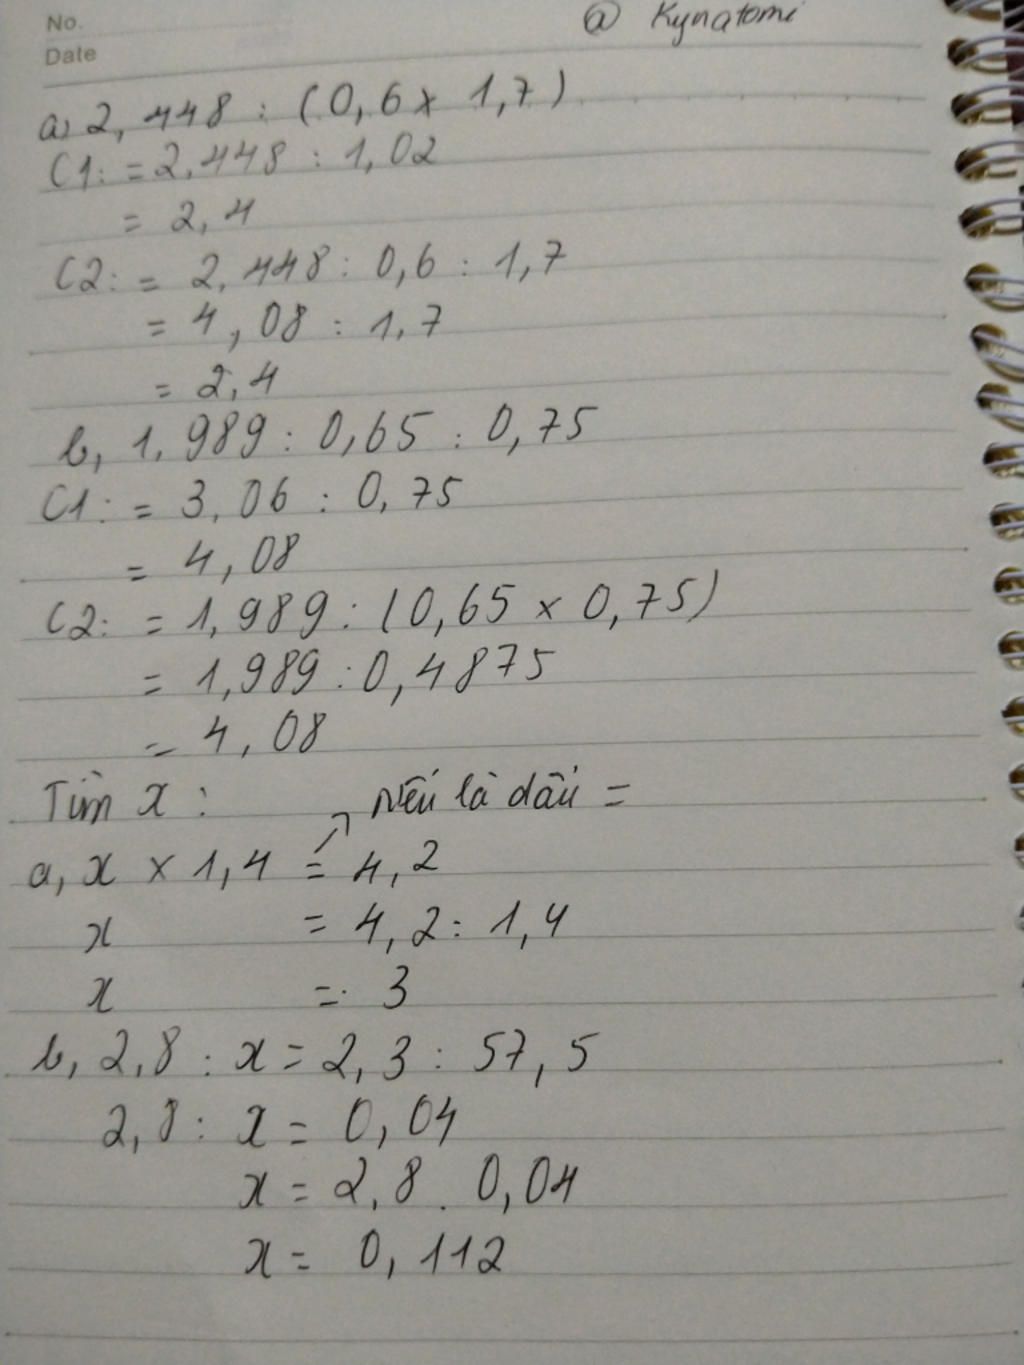 No.
@ Kynatomi
Date
a, 2,448 : (0,6 x 1,7)
C1: = 2,448 : 1,02
= 2,4
C2: = 2,448 : 0,6 : 1,7
= 4,08 : 1,7
= 2,4
b, 1,989 : 0,65 : 0,75
C1: = 3,06 : 0,75
= 4,08
C2: = 1,989 : (0,65 x 0,75)
= 1,989 : 0,4875
= 4,08
Tìm x : Nếu là dấu =
a, x x 1,4 = 4,2
x = 4,2 : 1,4
x = 3
b, 2,8 : x = 2,3 : 57,5
2,8 : x = 0,04
x = 2,8 . 0,04
x = 0,112